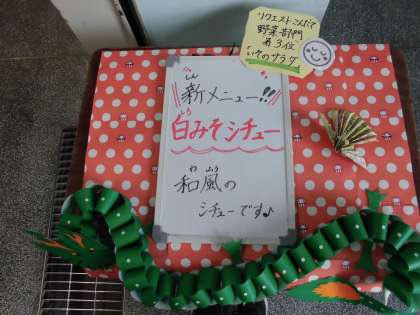 リクエストこんだて
野菜部門
第3位
いそのサラダ
しん
新メニュー!!
しろ
白みそシチュー
わ ふう
和風の
シチューです♪